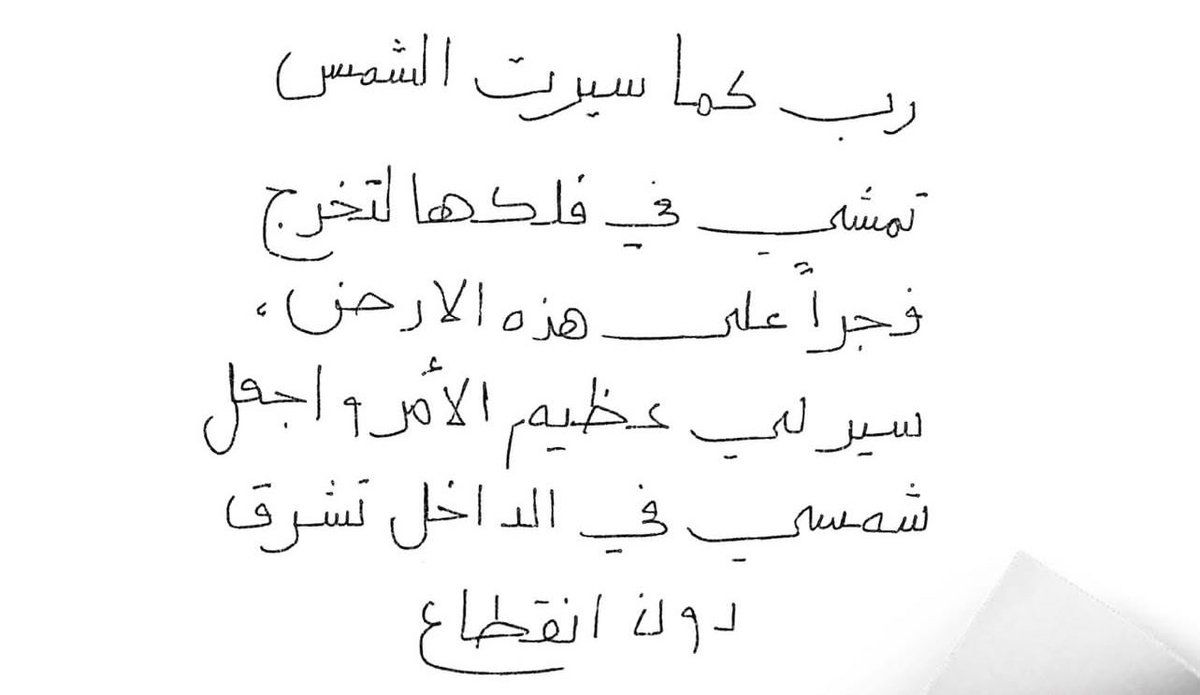 رب كما سيرت الشمس
تمشي في فلكها لتخرج
فجراً على هذه الارض ،
سير لي عظيم الأمر و اجعل
شمسي في الداخل تشرق
دون انقطاع